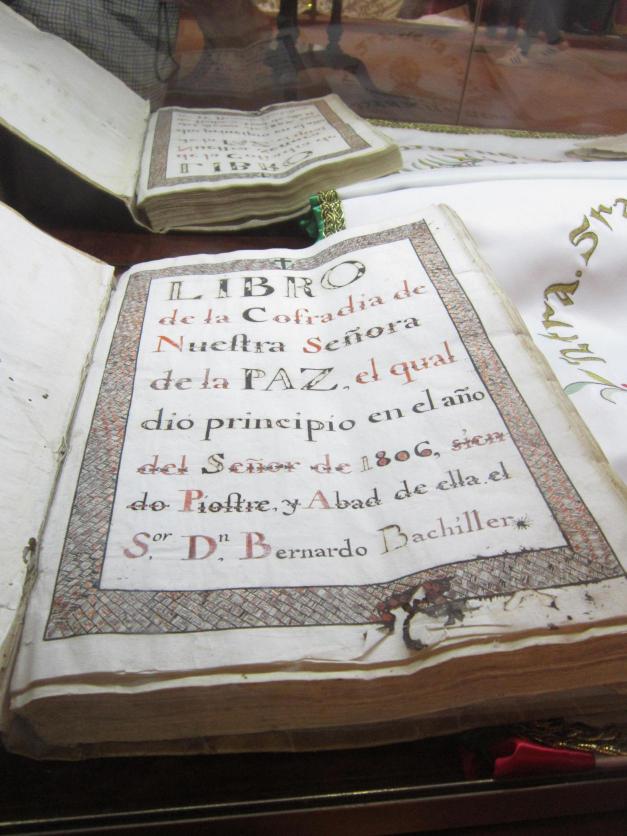 LIBRO
de la Cofradia de
Nueſtra Señora
de la PAZ, el qual
dió principio en el año
del Señor de 1806, sien
do Pioſtre, y Abad de ella el
S.or D.n Bernardo Bachiller
Ntra. Sra